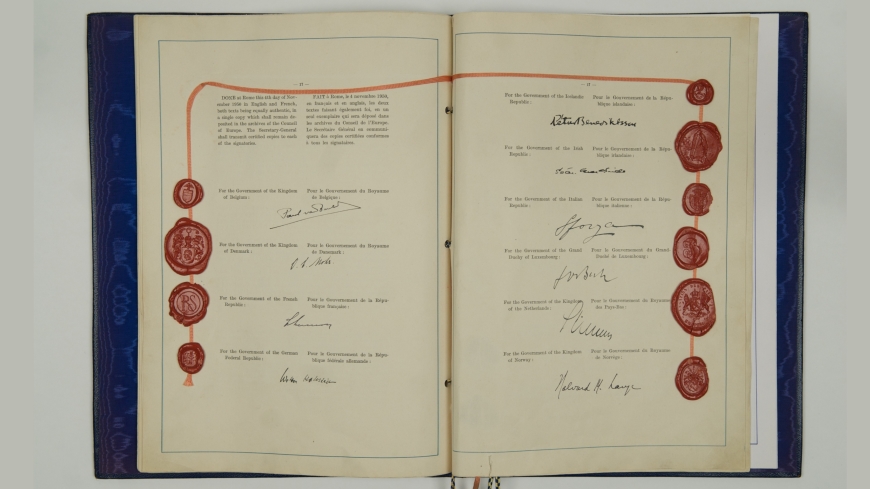 — 17 —
DONE at Rome this 4th day of Nov-
ember 1950 in English and French,
both texts being equally authentic, in
a single copy which shall remain de-
posited in the archives of the Council
of Europe. The Secretary-General
shall transmit certified copies to each
of the signatories.
FAIT à Rome, le 4 novembre 1950,
en français et en anglais, les deux
textes faisant également foi, en un
seul exemplaire qui sera déposé dans
les archives du Conseil de l'Europe.
Le Secrétaire Général en communi-
quera des copies certifiées conformes
à tous les signataires.
For the Government of the Kingdom
of Belgium:
Pour le Gouvernement du Royaume
de Belgique:
For the Government of the Kingdom
of Denmark:
Pour le Gouvernement du Royaume
de Danemark:
For the Government of the French
Republic:
Pour le Gouvernement de la Répu-
blique française:
RS
For the Government of the German
Federal Republic:
Pour le Gouvernement de la Répu-
blique fédérale allemande:
For the Government of the Icelandic
Republic:
Pour le Gouvernement de la Répu-
blique islandaise:
For the Government of the Irish
Republic:
Pour le Gouvernement de la Répu-
blique irlandaise:
For the Government of the Italian
Republic:
Pour le Gouvernement de la Répu-
blique italienne:
Sforza
For the Government of the Grand
Duchy of Luxembourg:
Pour le Gouvernement du Grand
Duché de Luxembourg:
Jos Bech
For the Government of the Kingdom
of the Netherlands:
Pour le Gouvernement du Royaume
des Pays-Bas:
For the Government of the Kingdom
of Norway:
Pour le Gouvernement du Royaume
de Norvège:
Halvard M. Lange